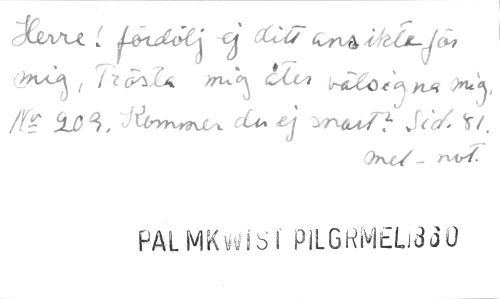 Herre! fördölj ej ditt ansikte för
mig, Trösta mig åter välsigna mig.
No 209. Kommer du ej snart? Sid. 81.
mel-not.
PALMKWIST PILGRMEL1860